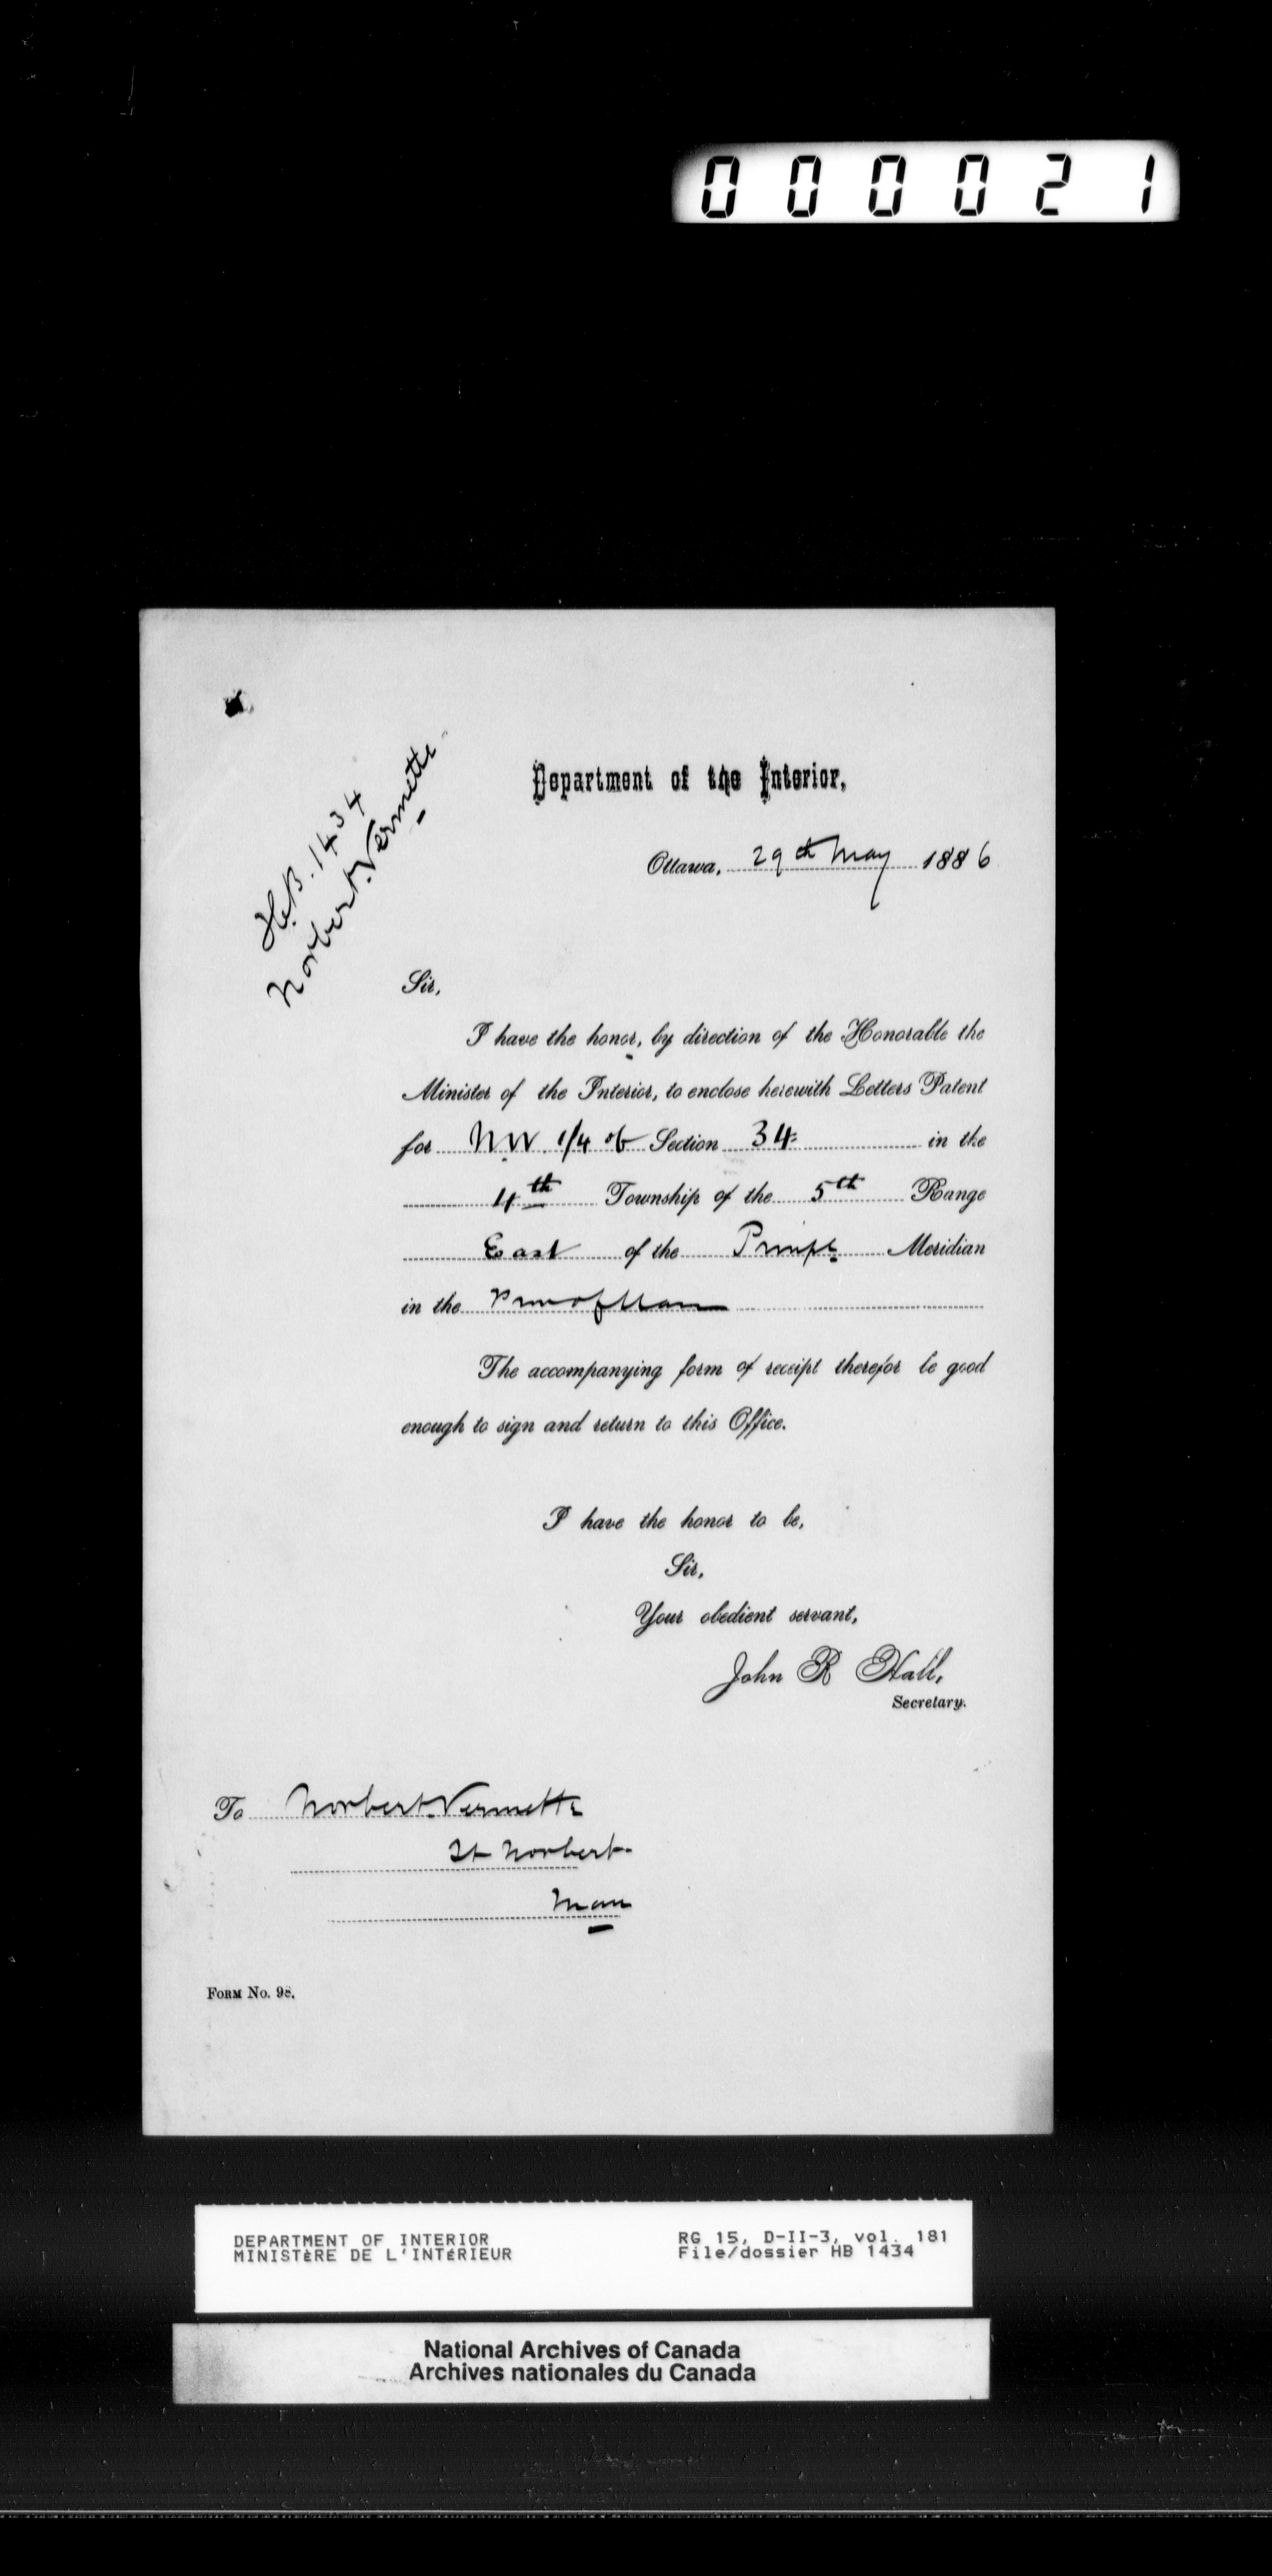 000021
H.B. 1434
Norbert Vermette
Department of the Interior,
Ottawa, 29th May 1886
Sir,
I have the honor, by direction of the Honorable the
Minister of the Interior, to enclose herewith Letters Patent
for N.W. 1/4 of Section 34 in the
4th Township of the 5th Range
East of the Prinpl Meridian
in the Prov of Man
The accompanying form of receipt therefor be good
enough to sign and return to this Office.
I have the honor to be,
Sir,
Your obedient servant,
John R Hall,
Secretary.
To Norbert Vermette
St Norbert
Man
FORM No. 98.
DEPARTMENT OF INTERIOR
MINISTÈRE DE L'INTÉRIEUR
RG 15, D-II-3, vol. 181
File/dossier HB 1434
National Archives of Canada
Archives nationales du Canada